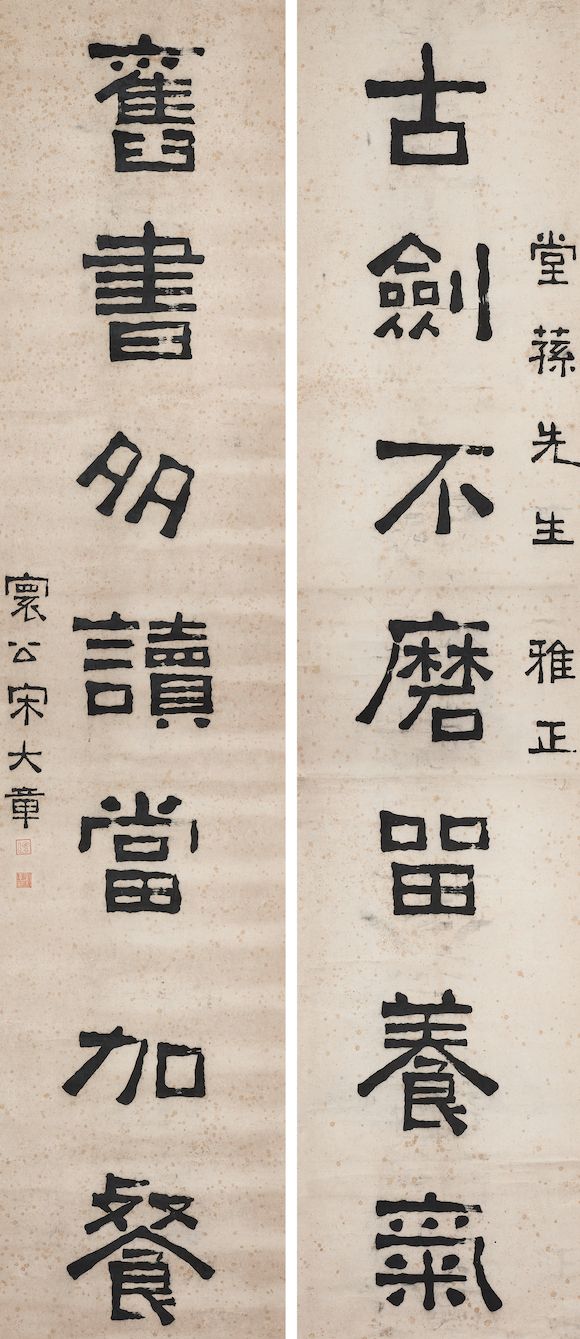 堂蓀先生 雅正
古劍不磨留養氣
舊書多讀當加餐
寰公宋大章